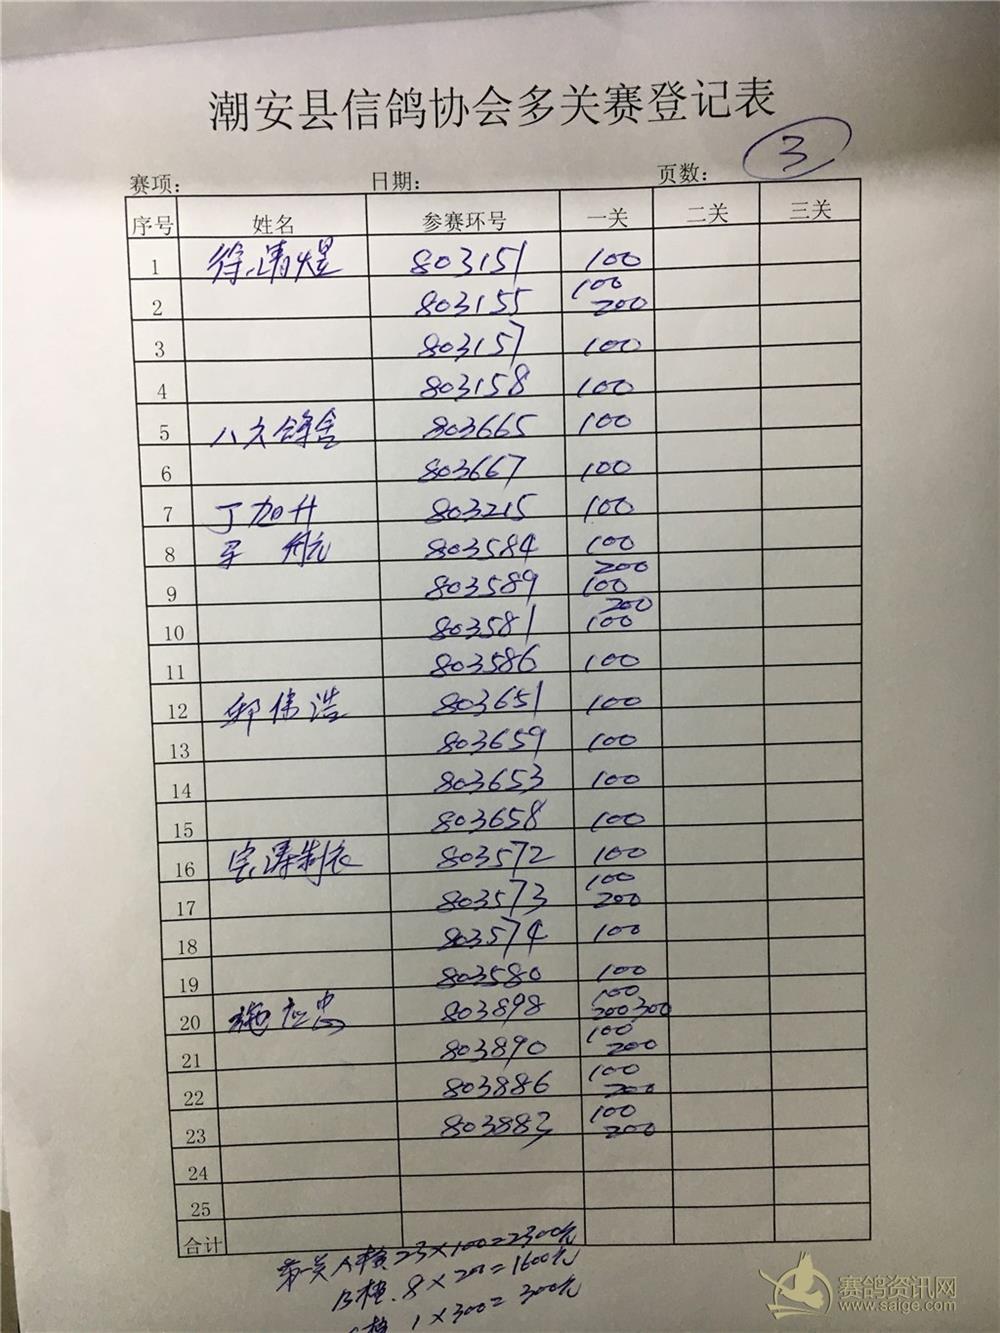 潮安县信鸽协会多关赛登记表
赛项: 日期: 页数: 3
序号 姓名 参赛环号 一关 二关 三关
1 徐清煜 803151 100
2 803155 100 200
3 803157 100
4 803158 100
5 八六鸽舍 803665 100
6 803667 100
7 丁加升 803215 100
8 航 803584 100
9 803589 200 100
10 803581 200 100
11 803586 100
12 邬伟浩 803651 100
13 803659 100
14 803653 100
15 803658 100
16 宗涛制衣 803572 100
17 803573 100 200
18 803574 100
19 803580 100
20 施应忠 803898 100 200 300
21 803890 100 200
22 803886 100 200
23 803883 100 200
24
25
合计
第一关A档 23×100=2300元
B档. 8×200=1600元
1×300=300元
赛鸽资讯网
www.saige.com